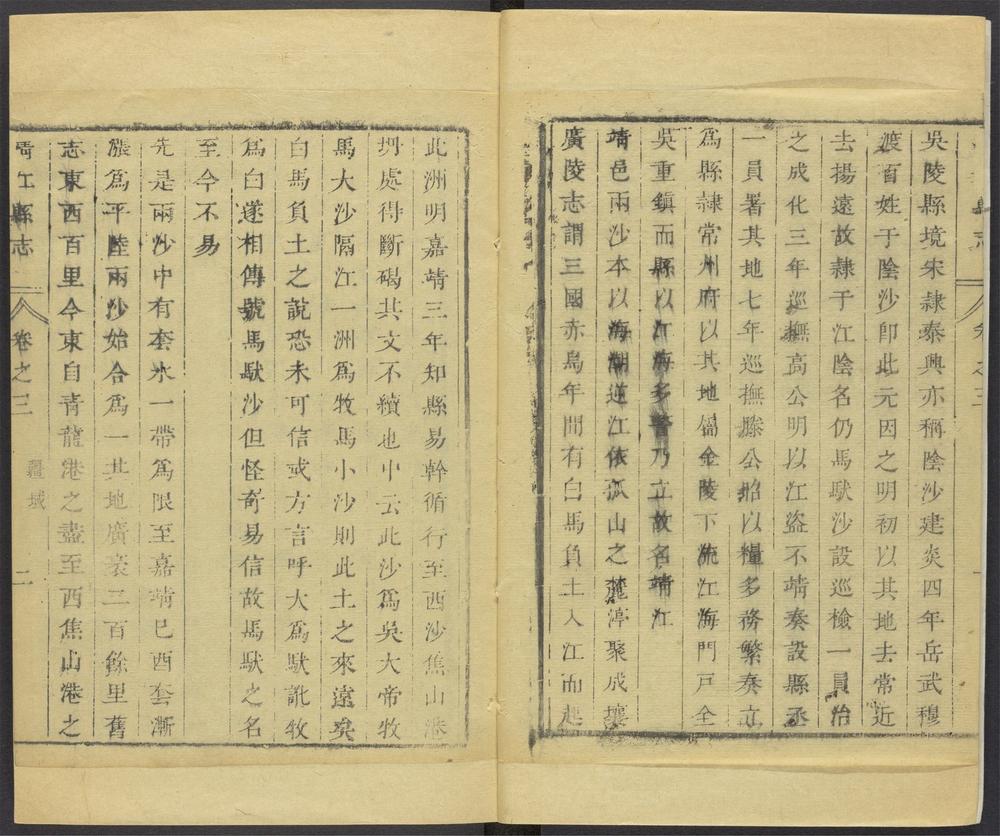 縣志
卷之三
吳陵縣境宋隷泰興亦稱陰沙建炎四年岳武穆
渡百姓于陰沙卽此元因之明初以其地去常近
去揚遠故隷于江陰名仍馬馱沙設巡檢一員治
之成化三年巡撫高公明以江盜不靖奏設縣丞
一員署其地七年巡撫滕公昭以糧多務繁奏立
爲縣隷常州府以其地鎬金陵下流江海門戸全
吳重鎮而縣以江海多警乃立故名靖江
靖邑兩沙本以海潮逆江依孤山之麓渟聚成壤
廣陵志謂三國赤烏年間有白馬負土入江而起
此洲明嘉靖三年知縣易幹循行至西沙焦山港
坍處得斷碣其文不續也中云此沙爲吳大帝牧
馬大沙隔江一洲爲牧馬小沙則此土之來遠矣
白馬負土之說恐未可信或方言呼大爲馱訛牧
爲白遂相傳號馬馱沙但怪奇易信故馬馱之名
至今不易
先是兩沙中有套水一帶爲限至嘉靖巳酉套漸
漲爲平陸兩沙始合爲一其地廣袤三百餘里舊
志東西百里今東自青龍港之盡至西焦山港之
靖江縣志
卷之三
疆域
二